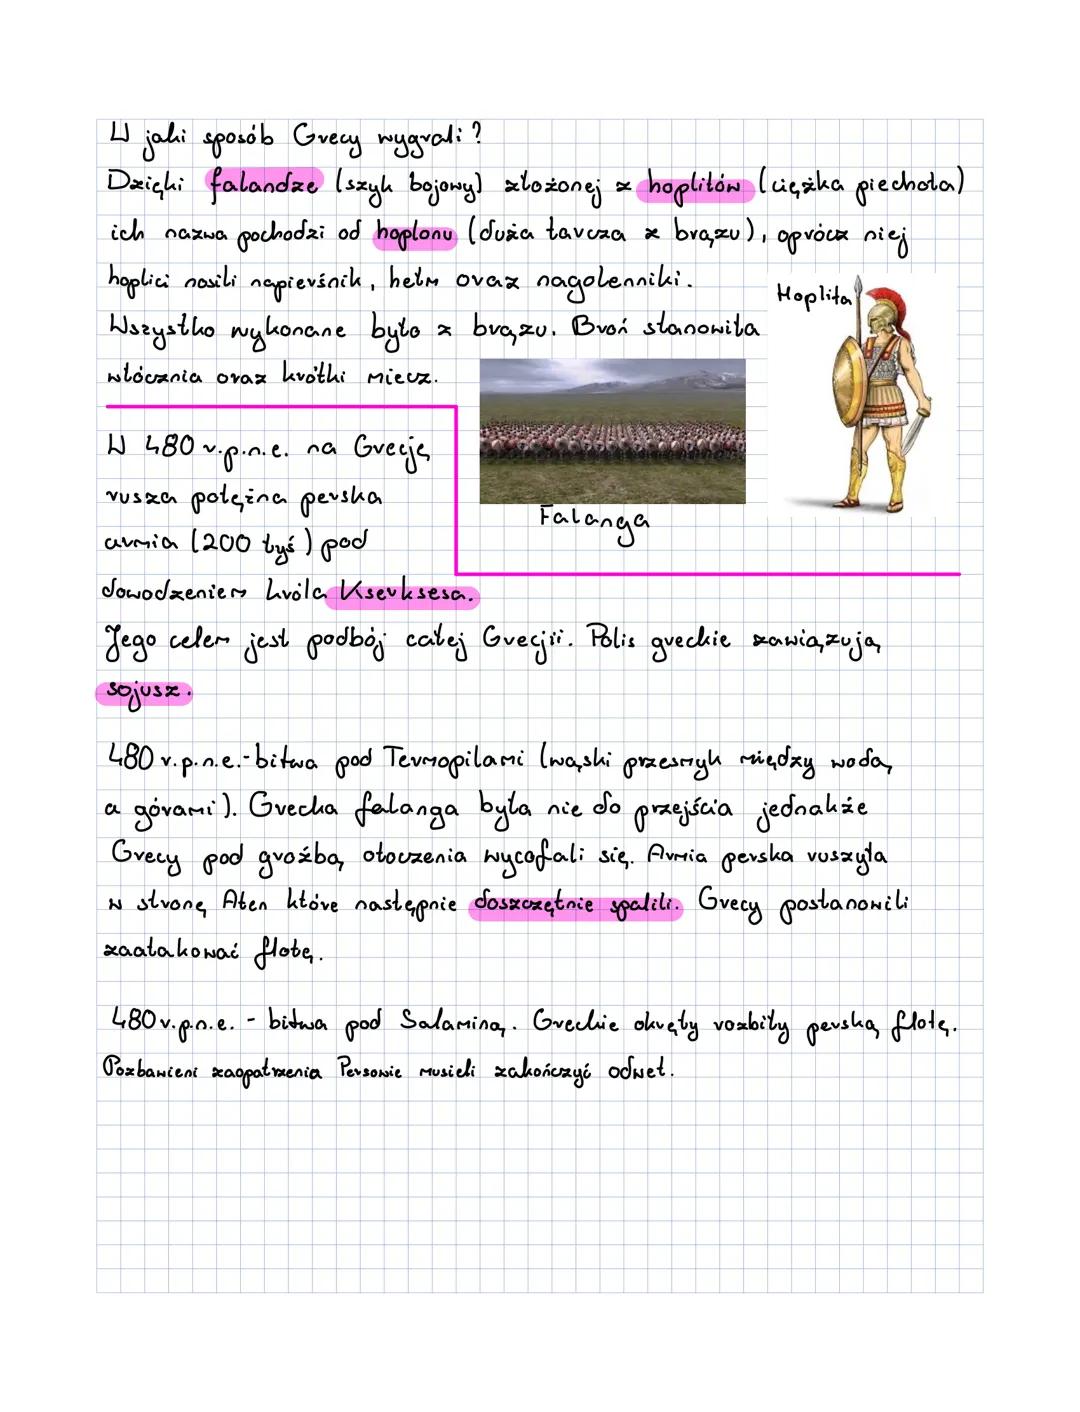 W jaki sposób Grecy wygrali?
Dzięki falandze (szyk bojowy) złożonej z hoplitów (ciężka piechota)
ich nazwa pochodzi od hoplonu (duża tarcza z brązu), oprócz niej
hoplici nosili napierśnik, hełm oraz nagolenniki.
Hoplita
Wszystko wykonane było z brązu. Broń stanowiła
włócznia oraz krótki miecz.
Falanga
W 480 r.p.n.e. na Grecję
rusza potężna perska
armia (200 tyś) pod
dowodzeniem króla Kserksesa.
Jego celem jest podbój całej Grecjii. Polis greckie zawiązują
sojusz.
480 r.p.n.e.-bitwa pod Termopilami (wąski przesmyk między wodą
a górami). Grecka falanga była nie do przejścia jednakże
Grecy pod groźbą otoczenia wycofali się. Armia perska ruszyła
w stronę Aten które następnie doszczętnie spalili. Grecy postanowili
zaatakować flotę.
480 r.p.n.e. - bitwa pod Salaminą. Greckie okręty rozbiły perską flotę.
Pozbawieni zaopatrzenia Persowie musieli zakończyć odwet.